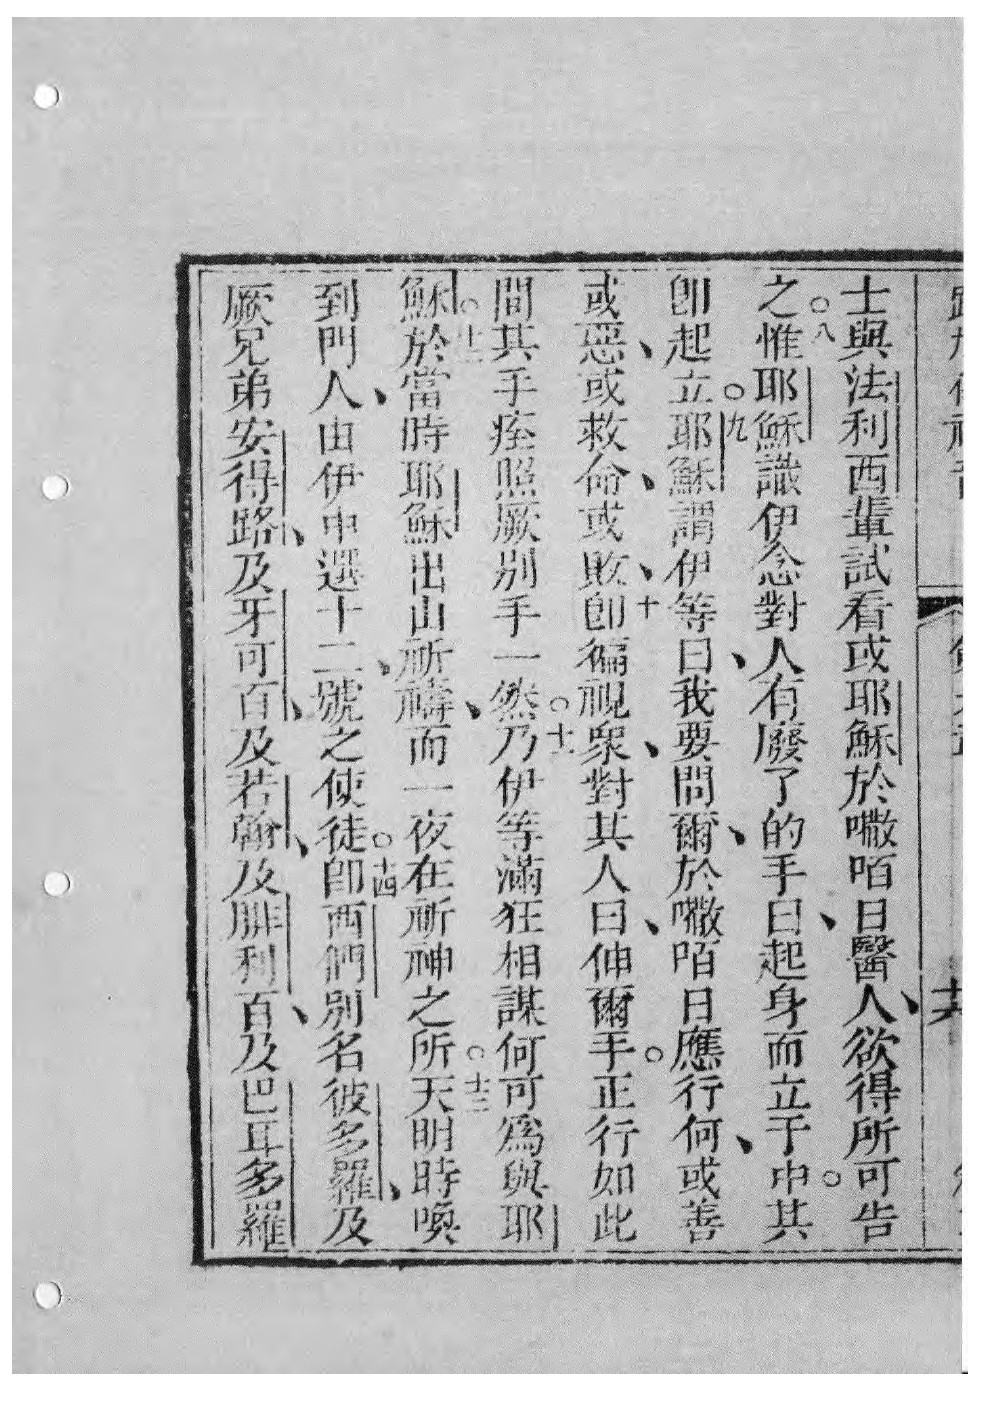 士與法利西輩試看或耶穌於嘞陌日醫人欲得所可告
之○八惟耶穌識伊念對人有廢了的手曰起身而立于中其
即起立○九耶穌謂伊等曰我要問爾於嘞陌日應行何或善
或惡或救命或敗十即徧視衆對其人曰伸爾手○正行如此
間其手痊照厥別手一然○十一乃伊等滿狂相謀何可爲與耶
穌○十二於當時耶穌出山祈禱而一夜在祈神之所○十三天明時喚
到門人由伊中選十二號之使徒○十四即西們別名彼多羅及
厥兄弟安得路及牙可百及若翰及腓利百及巴耳多羅